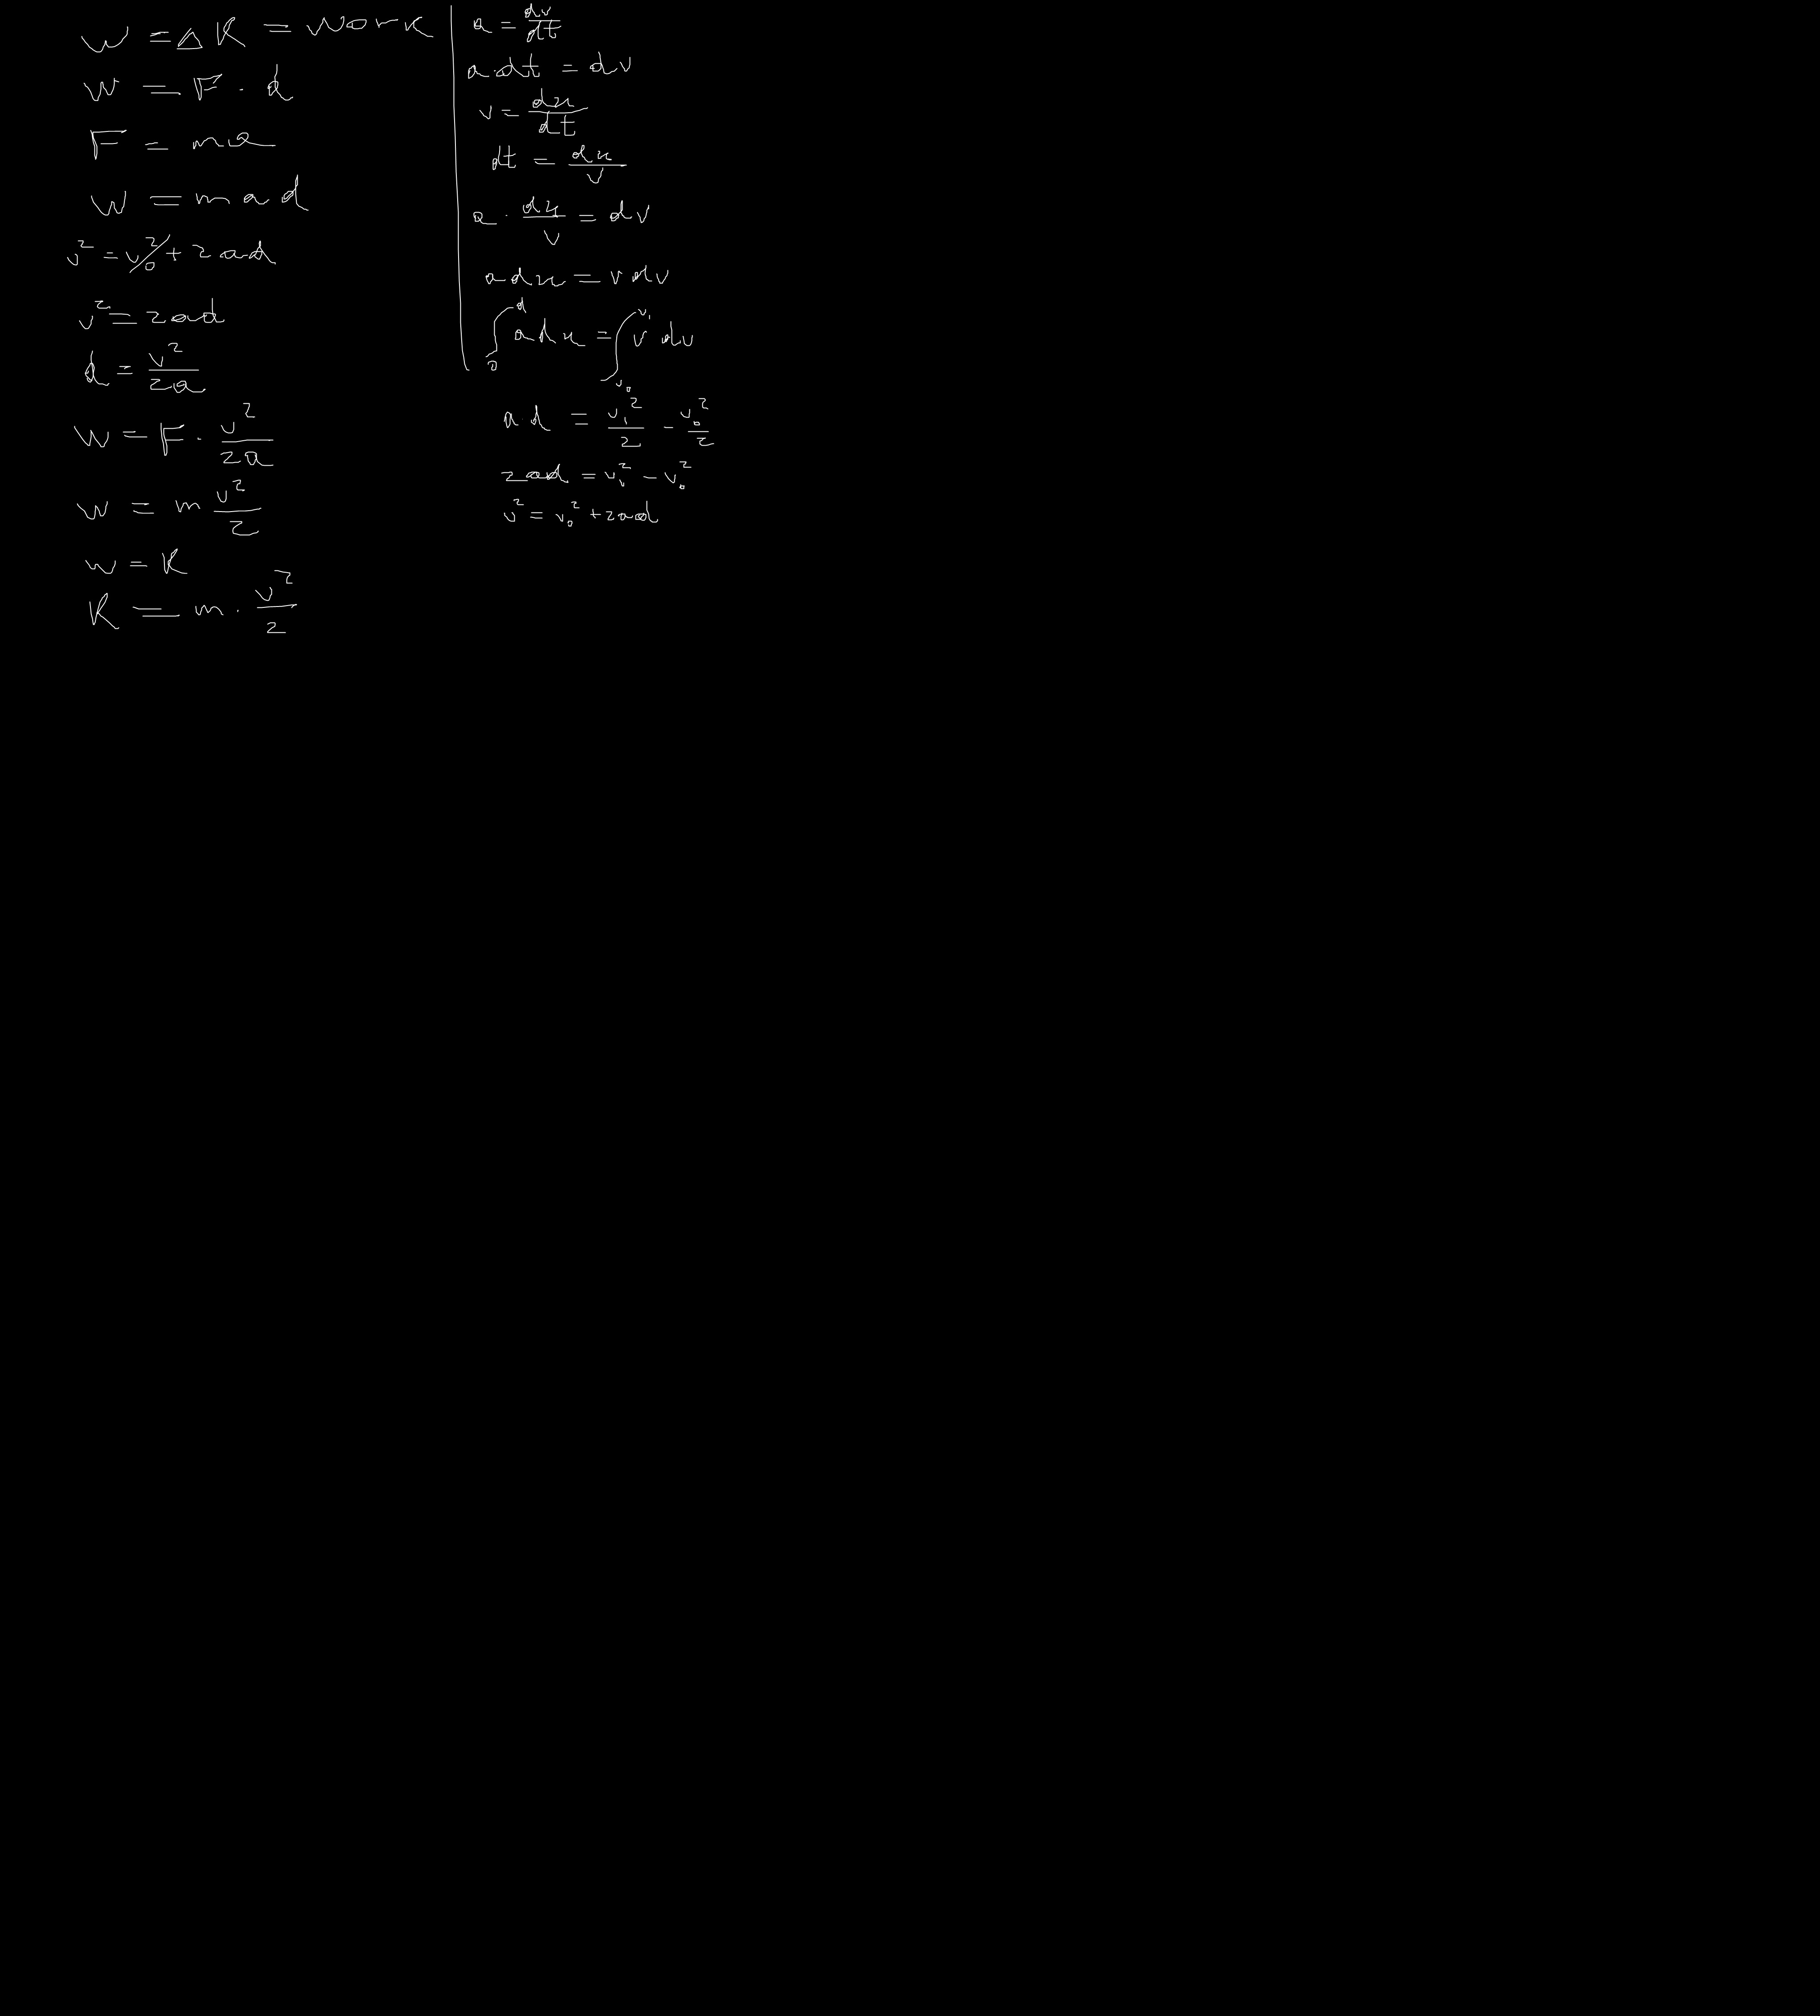 W = ΔK = Work
W = F · d
F = ma
W = mad
v² = v₀² + 2ad
v² = 2ad
d = v²/2a
W = F · v²/2a
W = m v²/2
W = K
K = m · v²/2
a = dv/dt
a·dt = dv
v = dx/dt
dt = dx/v
a · dx/v = dv
adx = vdv
∫₀ᵈ adx = ∫ᵥ₀ᵛ¹ v dv
ad = v₁²/2 - v₀²/2
2ad = v₁² - v₀²
v² = v₀² + 2ad